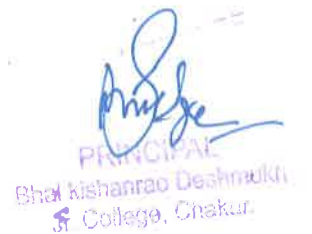 PRINCIPAL
Bhai Kishanrao Deshmukh
College, Chakur.